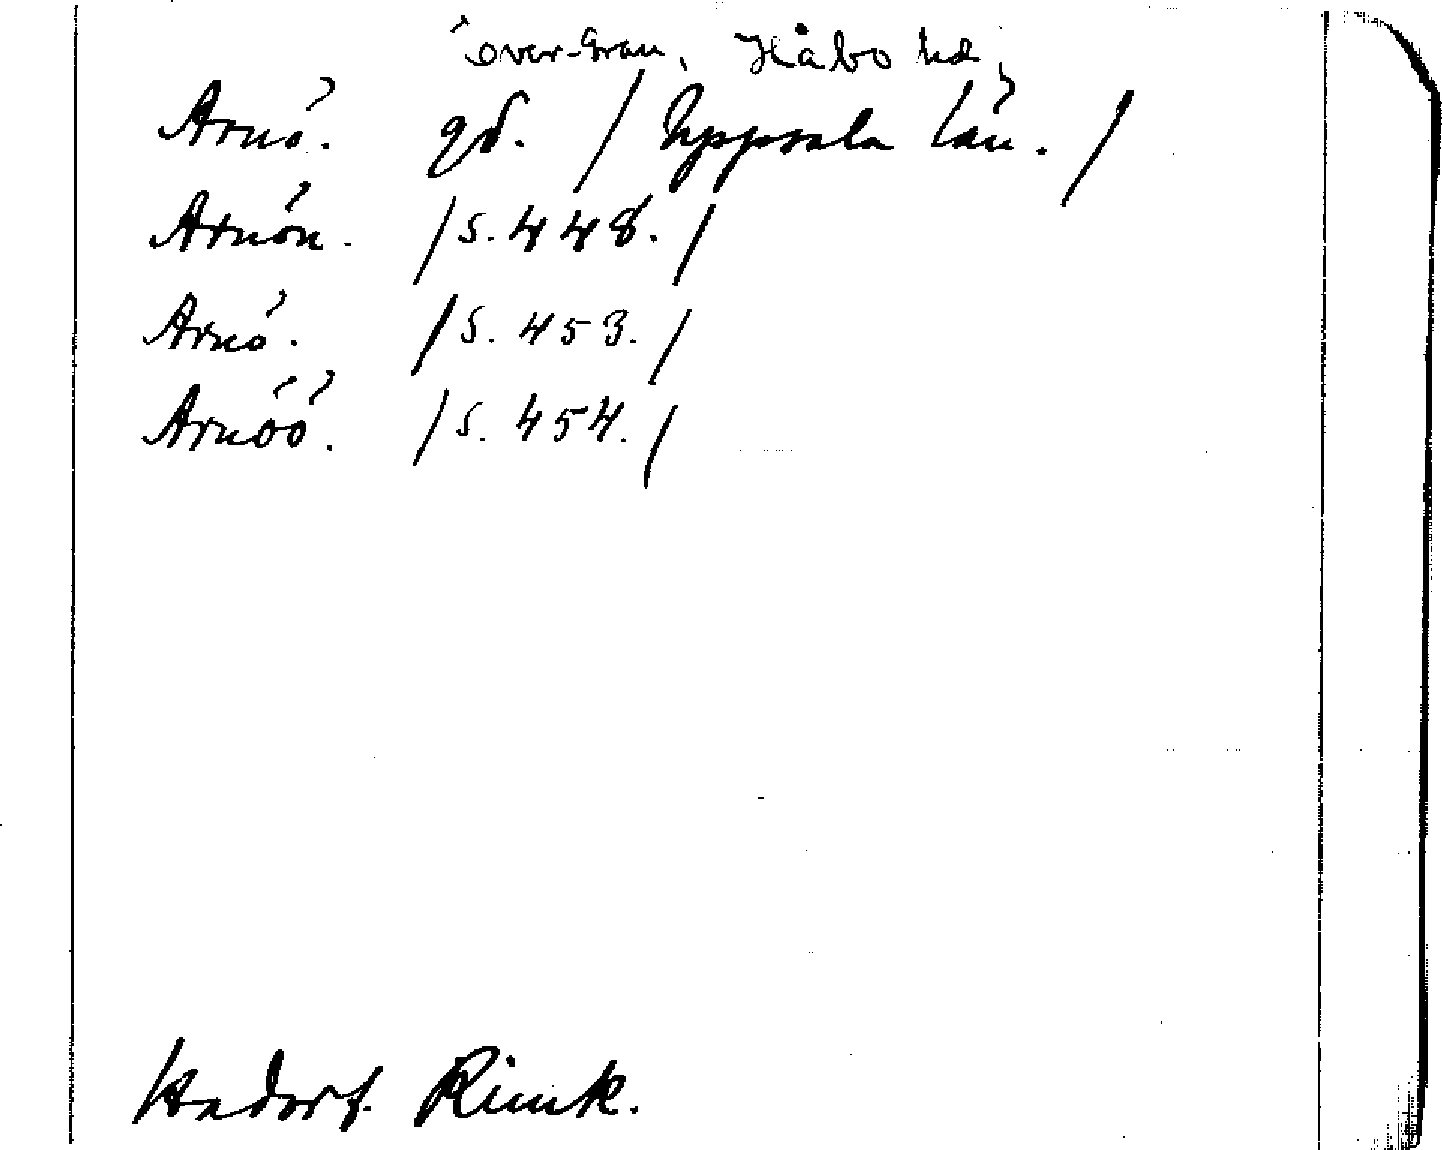 över-Gran, Håbo hd,
Arnö. gd. / Uppsala län. /
Arnön. /S. 448./
Arnö. /S. 453./
Arnöö. /S. 454./
Hadorf. Rimk.